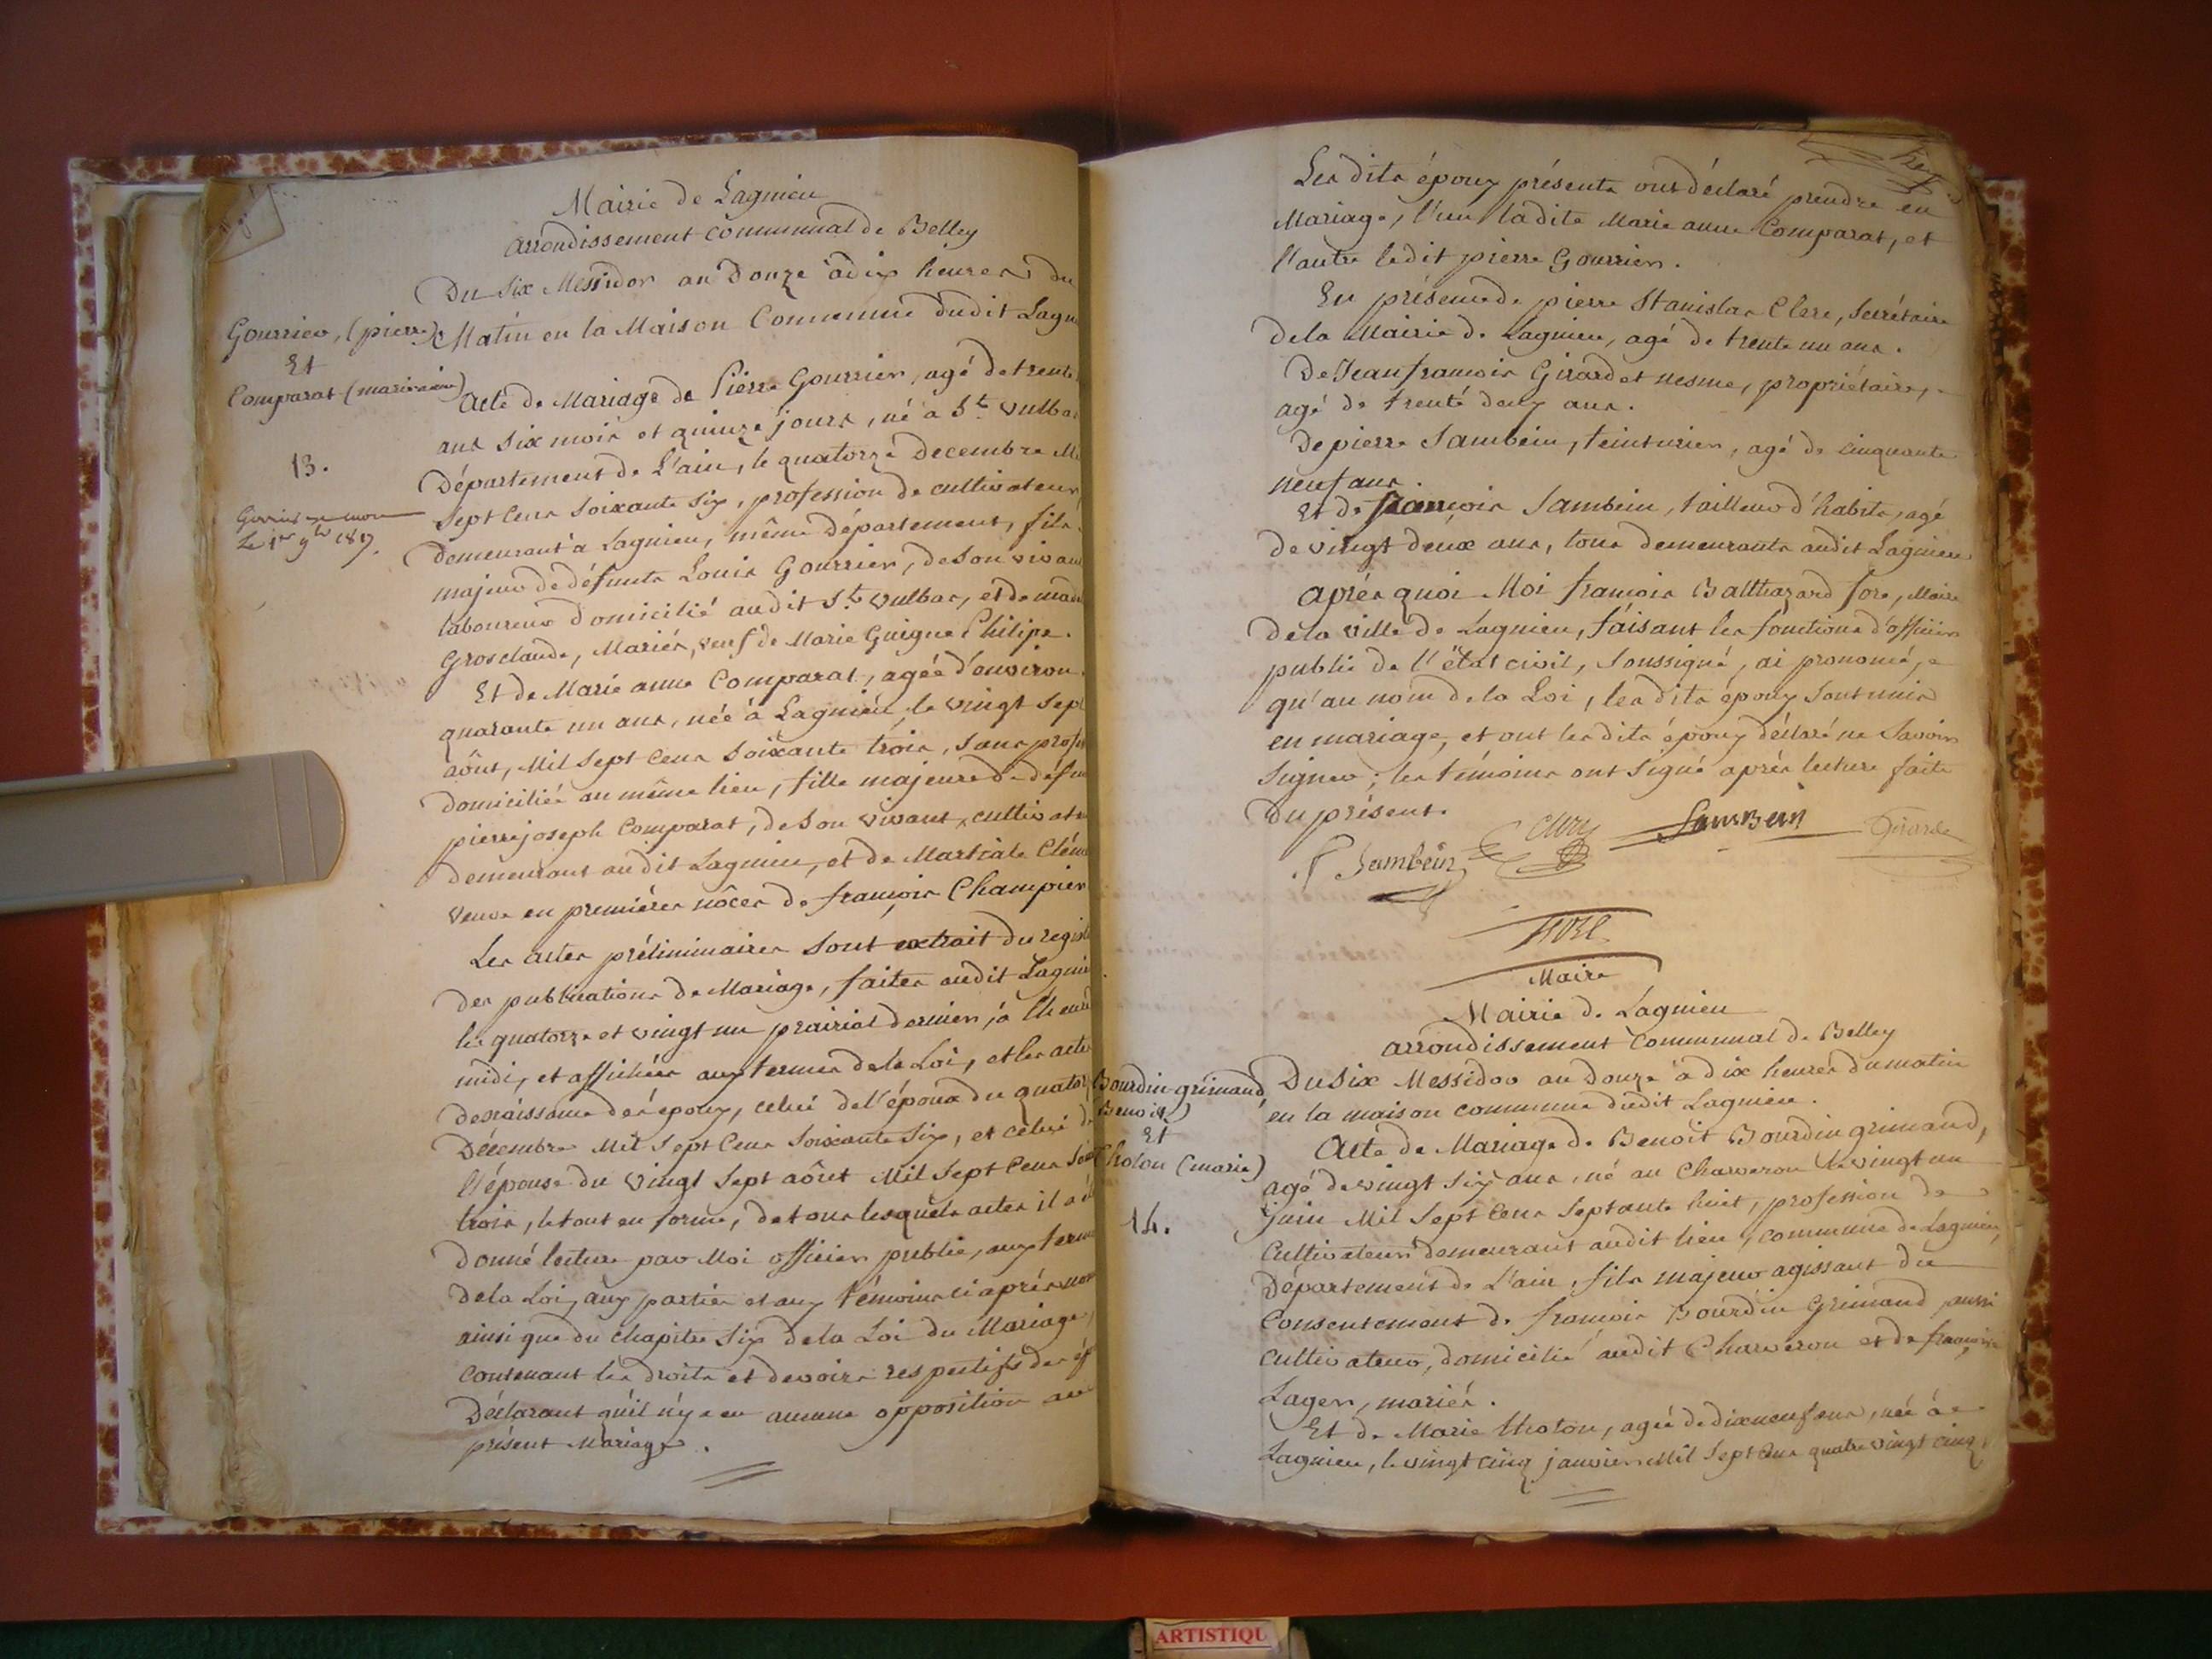 Mairie de Lagnieu
arrondissement communal de Belley
Du Six Messidor an Douze à dix heures du
Matin en la Maison Commune dudit Lagn
Gourrier, (pierre)
Et
Comparat (marianne)
13.
Le 1er 9bre 1817.
Acte de Mariage de Pierre Gourrier, agé de trente
ans six mois et quinze jours, né à St. Vulbas
Département de L'ain, le quatorze decembre Mil
Sept Cens Soixante Six, profession de cultivateur,
demeurant à Lagnieu, même département, fils
majeur de défunts Louis Gourrier, de son vivant
laboureur domicilié audit St. Vulbas, et de
Grosclaude, Mariés, veuf de Marie Guigue Philipe.
Et de Marie anne Comparat, agée d'environ
quarante un ans, née à Lagnieu, le vingt Sept
aôut, Mil Sept Cens Soixante trois, Sans profes
domiciliée au même lieu, fille majeure de défun
pierre joseph Comparat, de Son vivant cultivate
demeurant audit Lagnieu, et de Martiale Clém
veuve en premières nôces de françois Champier
Les actes préliminaires Sont extrait du regist
des publications de Mariage, faites audit Lagnie
les quatorze et vingt un prairial dernier, à l'heure
midi, et affichées aux termes de la Loi, et les actes
de naissance des epoux, celui de l'époux du quator
Décembre Mil Sept Cens Soixante Six, et celui de
l'épouse du vingt Sept aôut Mil Sept Cens Soix
trois, le tout en forme, de tous lesquels actes il a été
donné lecture par Moi officier public, aux termes
de la Loi, aux parties et aux témoins ci après nom
ainsi que du chapitre Six de la Loi du Mariage,
contenant les droits et devoirs respectifs des ép
Déclarant qu'il n'y a eu aucune opposition au
présent Mariage.
Les dits époux présents ont déclaré prendre en
Mariage, l'un ladite Marie anne Comparat, et
l'autre ledit pierre Gourrier.
En présence de pierre Stanislas Clerc, Secrétaire
de la Mairie de Lagnieu, agé de trente un ans.
De Jean françois Girardet nesme, propriétaire,
agé de trente deux ans.
De pierre Sambein, teinturier, agé de cinquante
neuf ans.
Et de françois Sambein, tailleur d'habits, agé
de vingt deux ans, tous demeurants audit Lagnieu.
après quoi Moi françois Balthazard fore, Maire
de la ville de Lagnieu, faisant les fonctions d'officier
public de l'état civil, Soussigné, ai prononcé,
qu'au nom de la Loi, les dits époux Sont unis
en mariage, et ont les dits époux déclaré ne Savoir
Signer ; les témoins ont Signé après lecture faite
du présent.
Clerc Sambein Girarde
f Sambein
fore
Maire
Mairie de Lagnieu
arrondissement Communal de Belley
Bourdin grimaud,
Benoit)
Et
Tholon (marie)
14.
Du Six Messidor an Douze à dix heures du matin
en la maison commune dudit Lagnieu.
Acte de Mariage de Benoit Bourdin grimaud,
agé de vingt Six ans, né au Charveron le vingt un
juin Mil Sept Cens Septante huit, profession de
Cultivateur demeurant audit lieu, commune de Lagnieu,
Département de L'ain, fils majeur agissant du
Consentement de françois Bourdin Grimaud aussi
cultivateur, domicilié audit Charveron et de françoise
Lager, mariés.
Et de Marie tholon, agée de dixneuf ans, née à
Lagnieu, le vingt cinq janvier Mil Sept Cens quatre vingt cinq,
ARTISTIQU